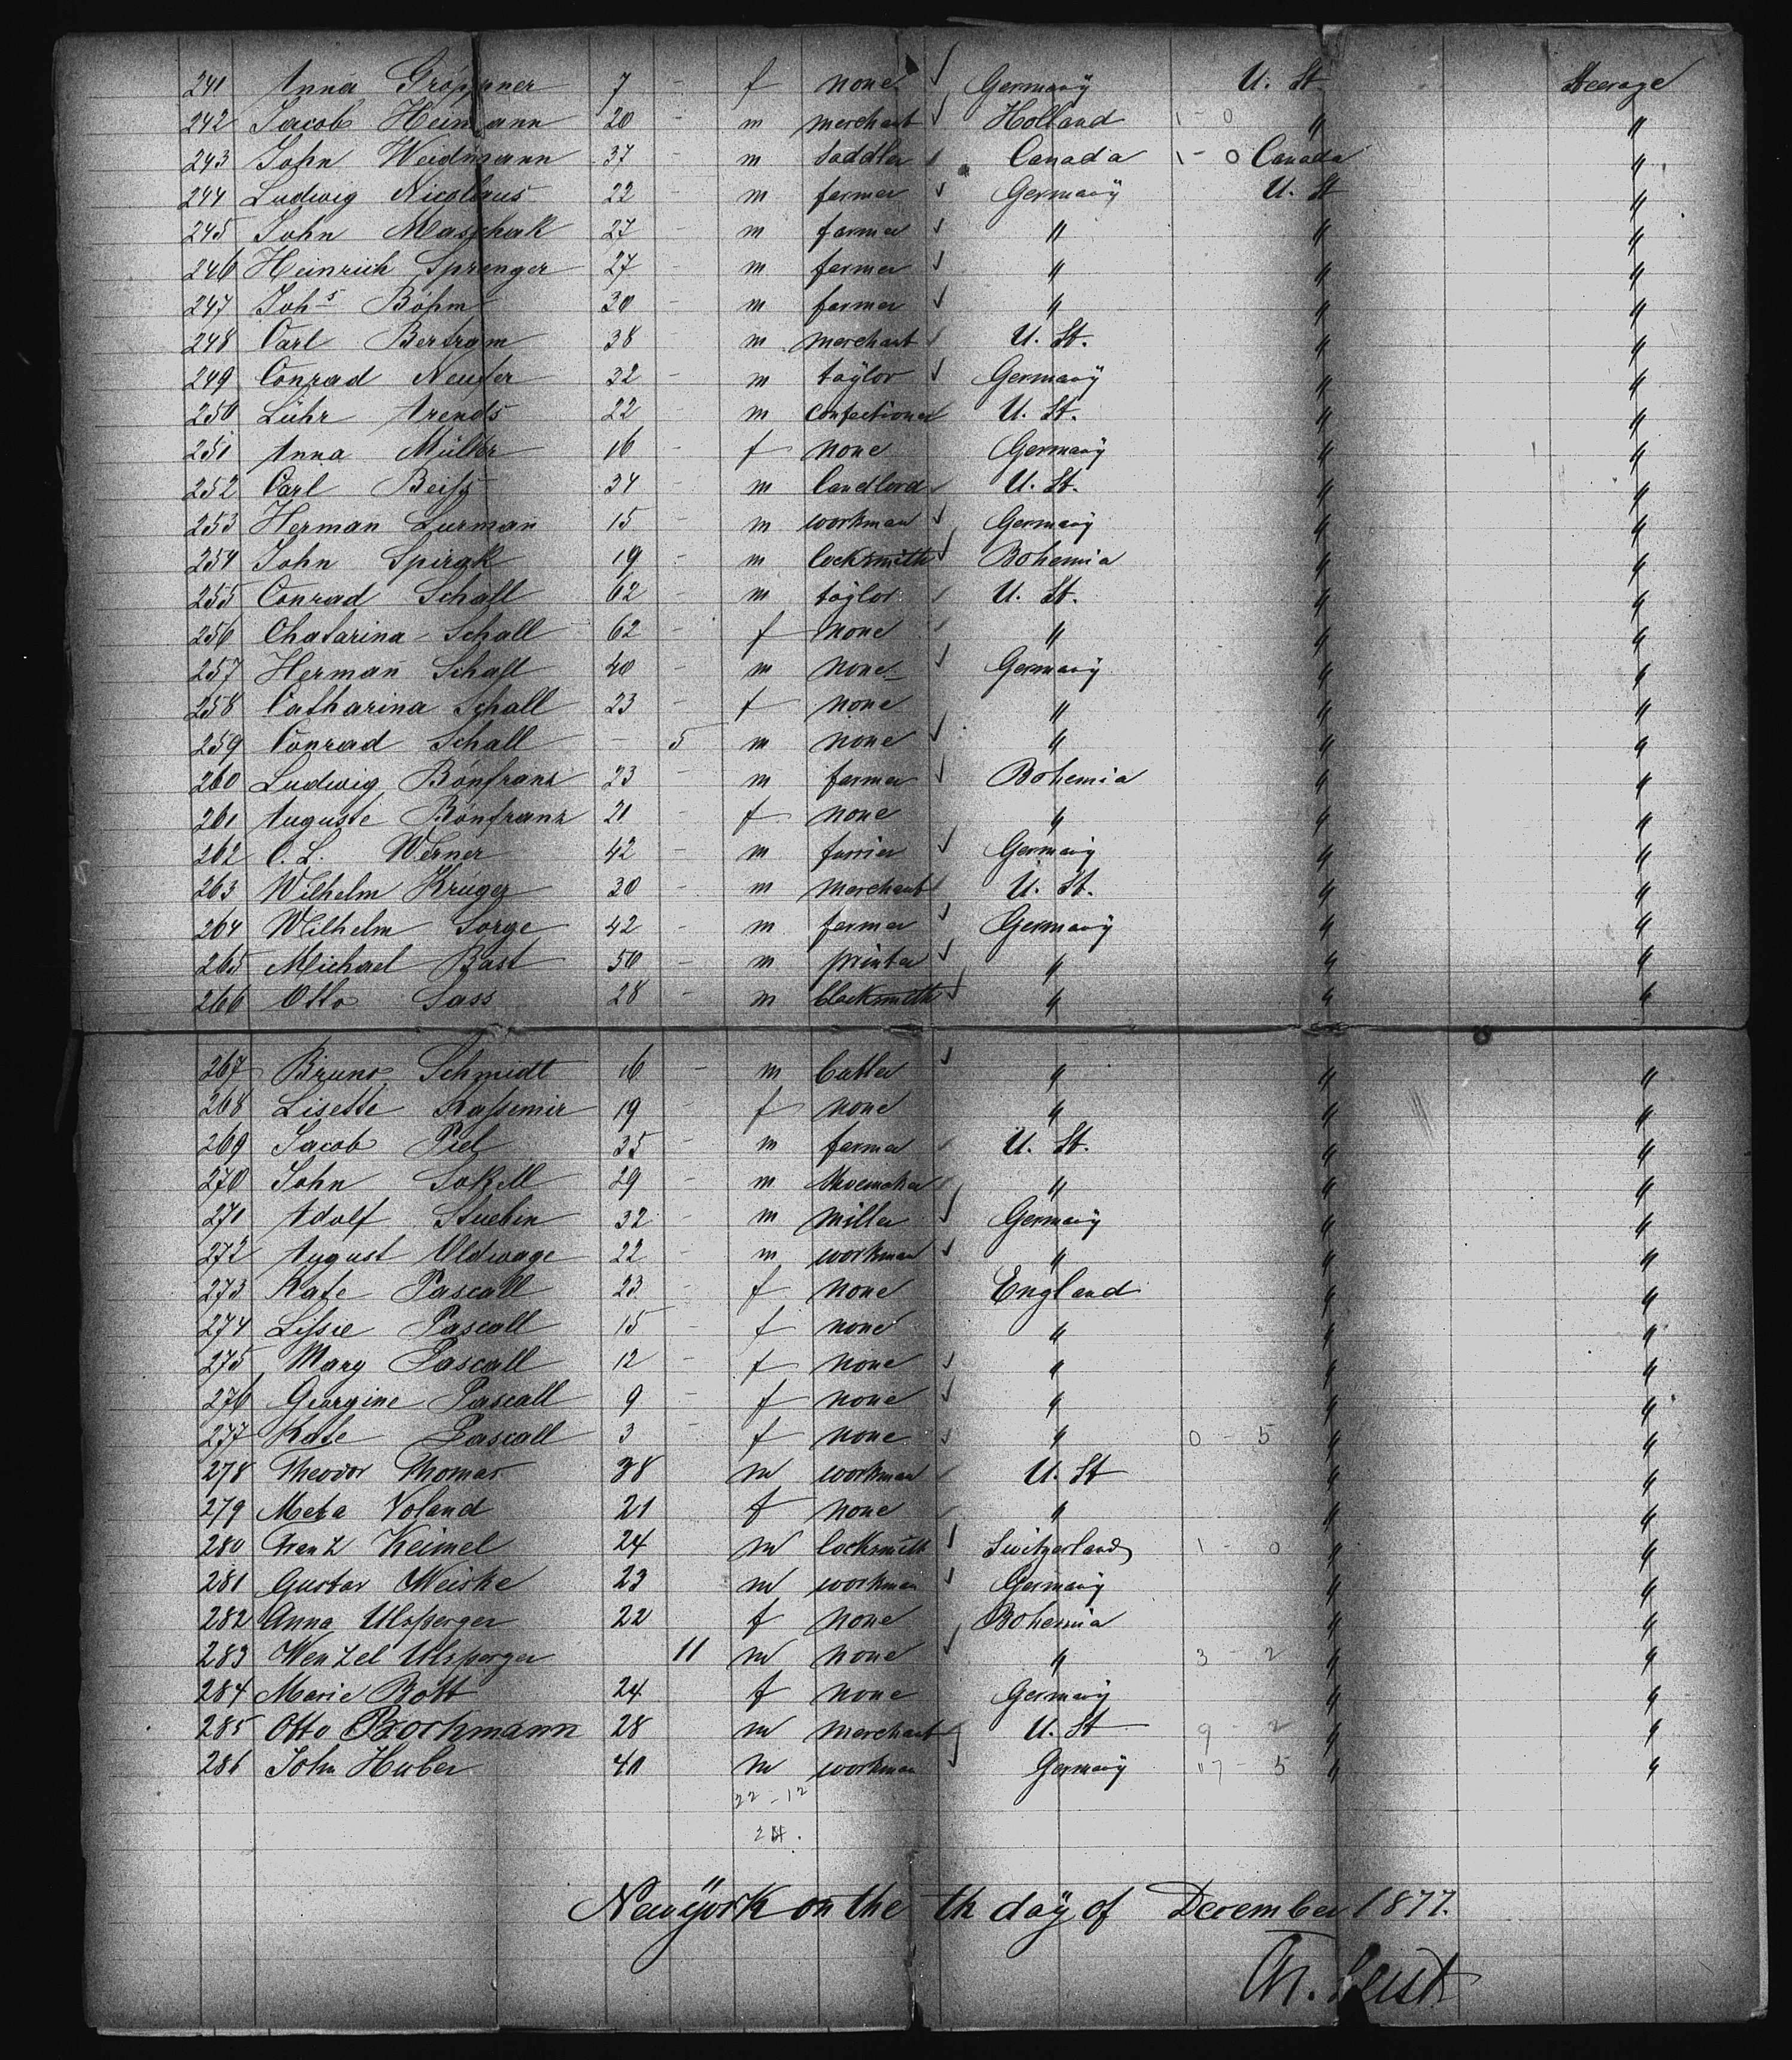 241 Anna Gröppner 7 - f none ✓ Germany U. St. Steerage
242 Jacob Heimann 20 - m merchant ✓ Holland 1 - 0 " "
243 John Weidmann 37 - m saddler Canada 1 - 0 Canada "
244 Ludwig Nicolaus 22 - m farmer ✓ Germany U. St "
245 John Maschak 27 - m farmer ✓ " " "
246 Heinrich Sprenger 27 - m farmer ✓ " " "
247 Johs Böhm 30 - m farmer ✓ " " "
248 Carl Bertram 38 - m merchant ✓ U. St. " "
249 Conrad Neufer 32 - m taylor ✓ Germany " "
250 Lühr Arends 22 - m confectioner U. St. " "
251 Anna Müller 16 - f none Germany " "
252 Carl 34 - m landlord ✓ U. St. " "
253 Herman Lurman 15 - m workman ✓ Germany " "
254 John Spirak 19 - m locksmith ✓ Bohemia " "
255 Conrad Schall 62 - m taylor ✓ U. St. " "
256 Chatarina Schall 62 - f none ✓ " " "
257 Herman Schall 40 - m none ✓ Germany " "
258 Catharina Schall 23 - f none " " "
259 Conrad Schall - 5 m none ✓ " " "
260 Ludwig Bönfranz 23 - m farmer ✓ Bohemia " "
261 Auguste Bönfranz 21 - f none " " "
262 C. L. Werner 42 - m furrier ✓ Germany " "
263 Wilhelm Krüger 30 - m merchant ✓ U. St. " "
264 Wilhelm Sorge 42 - m farmer ✓ Germany " "
265 Michael Bast 50 - m printer ✓ " " "
266 Otto Sass 28 - m blacksmith ✓ " " "
267 Bruno Schmidt 16 - m butler ✓ " " "
268 Lisette Kassemir 19 - f none " " "
269 Jacob Piel 35 - m farmer ✓ U. St. " "
270 John Sokell 29 - m shoemaker " " "
271 Adolf Stuebin 32 - m miller ✓ Germany " "
272 August Oldwage 22 - m workman ✓ " " "
273 Kate Pascall 23 - f none England " "
274 Lissie Pascall 15 - f none " " "
275 Mary Pascall 12 - f none ✓ " " "
276 Georgine Pascall 9 - f none ✓ " " "
277 Kate Pascall 3 - f none ✓ " 0 - 5 " "
278 Theodor Thomas 38 m workman ✓ U. St " "
279 Meta Voland 21 f none ✓ " " "
280 Franz Keimel 24 m locksmith ✓ Switzerland 1 - 0 " "
281 Gustav Meiske 23 m workman ✓ Germany " "
282 Anna Ulsperger 22 f none Bohemia " "
283 Wenzel Ulsperger 11 m none ✓ " 3 - 2 " "
284 Marie Bott 24 f none Germany " "
285 Otto Brockmann 28 m merchant U. St 9 - 2 " "
286 John Huber 40 m workman ✓ Germany 07 - 5 " "
22 - 12
Newÿork on the th day of December 1877.
Th. Leist